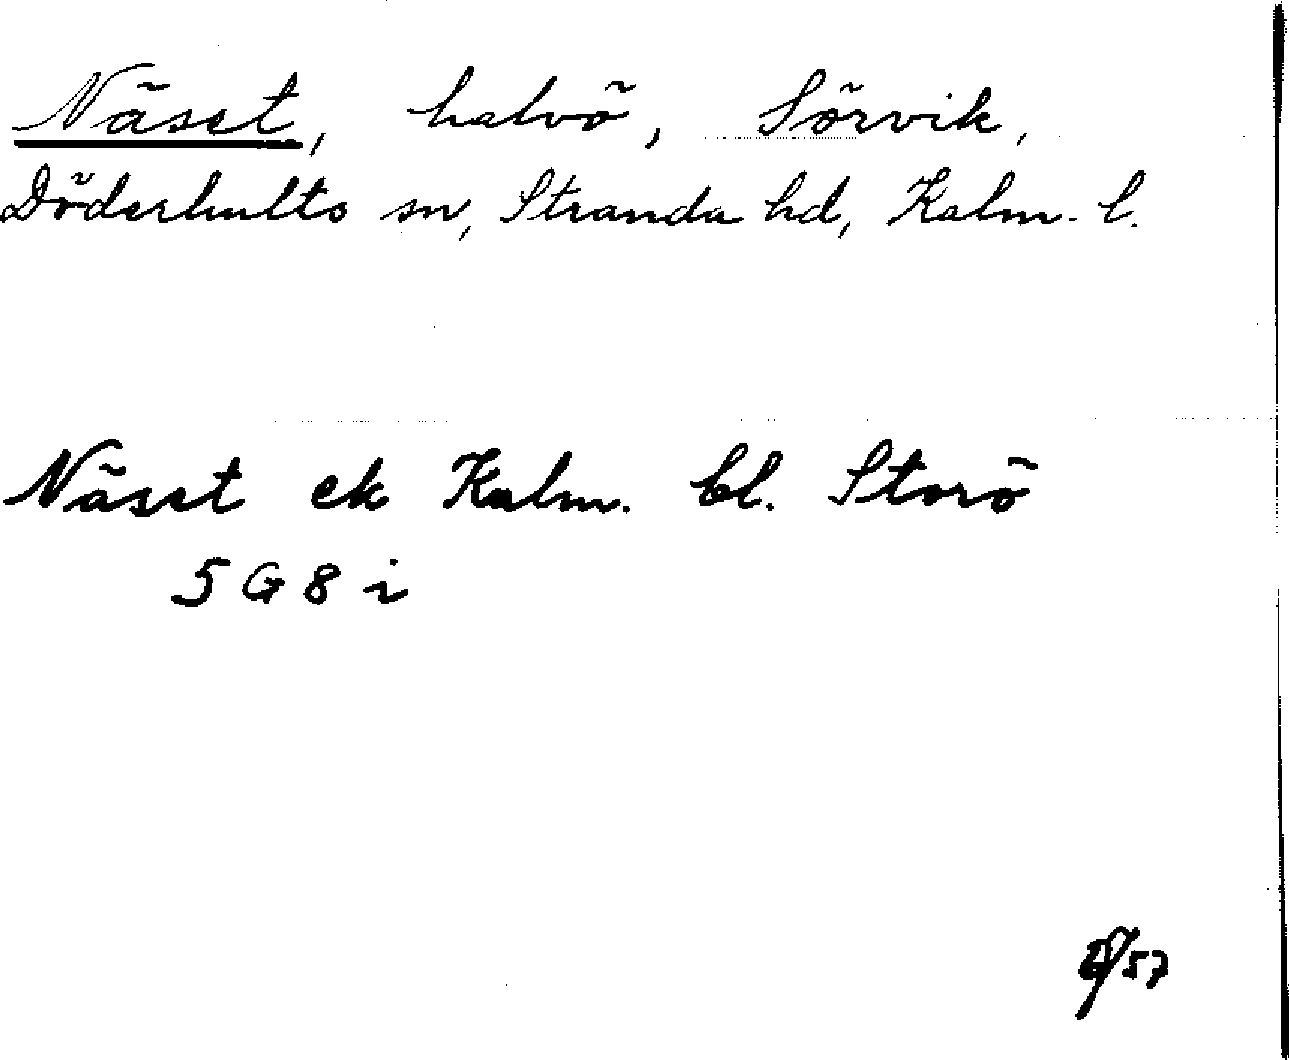 Näset, halvö, Sörvik,
Döderhults sn, Stranda hd, Kalm. l.
Näset ek Kalm. bl. Storö
5 G 8 i
/57